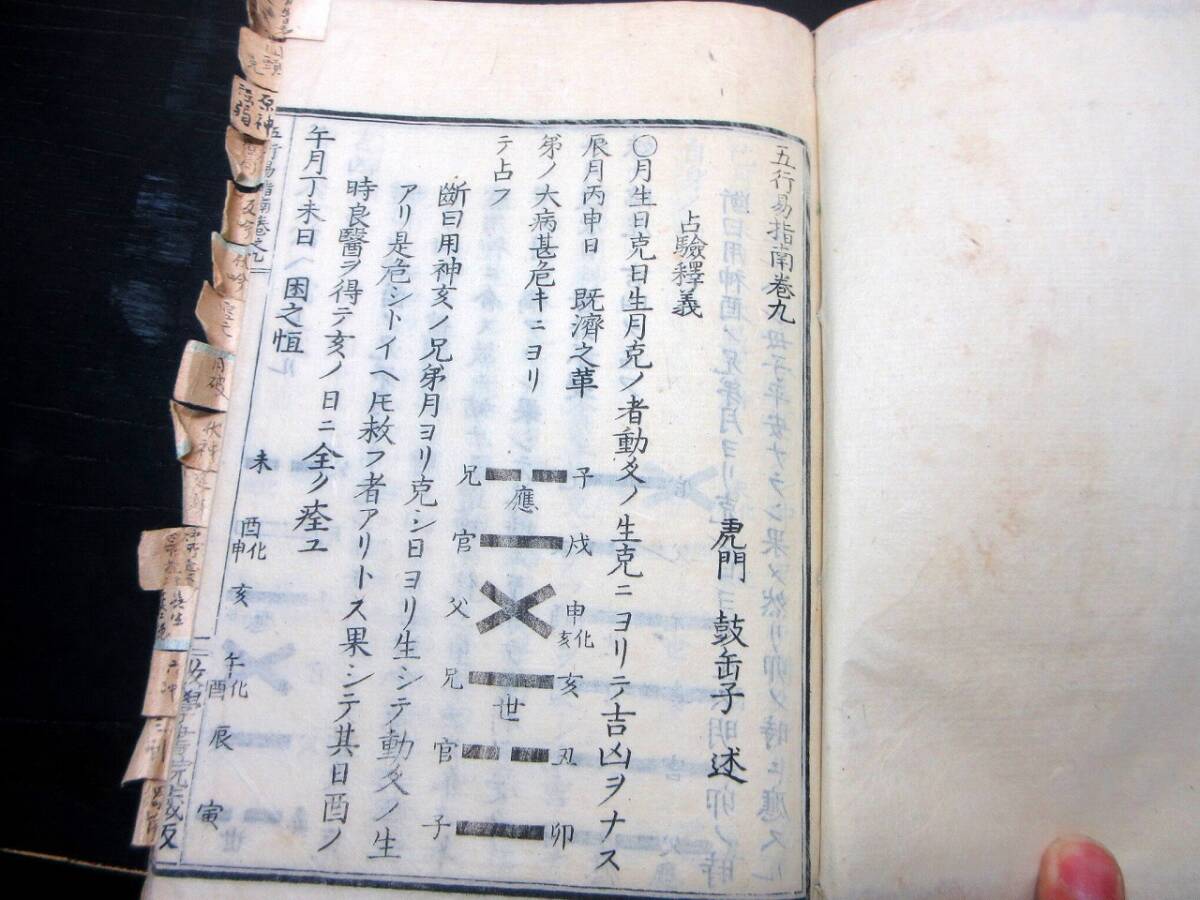 五行易指南卷九
虎門 鼓缶子 述
占驗釋義
〇月生日克日生月克ノ者動爻ノ生克ニヨリテ吉凶ヲナス
辰月丙申日 既濟之革
弟ノ大病甚危キニヨリ
テ占フ
子 兄
應
戌 官
申化亥 父
亥 兄
世
丑 官
卯 子
斷曰用神亥ノ兄弟月ヨリ克シ日ヨリ生シテ動爻ノ生
アリ是危シトイヘ𪜈救フ者アリトス果シテ其日酉ノ
時良醫ヲ得テ亥ノ日ニ全ク痊ユ
午月丁未日 困之恒
未
酉化申
亥
午化酉
辰
寅
五行易指南卷之九
原神
月破
伏神